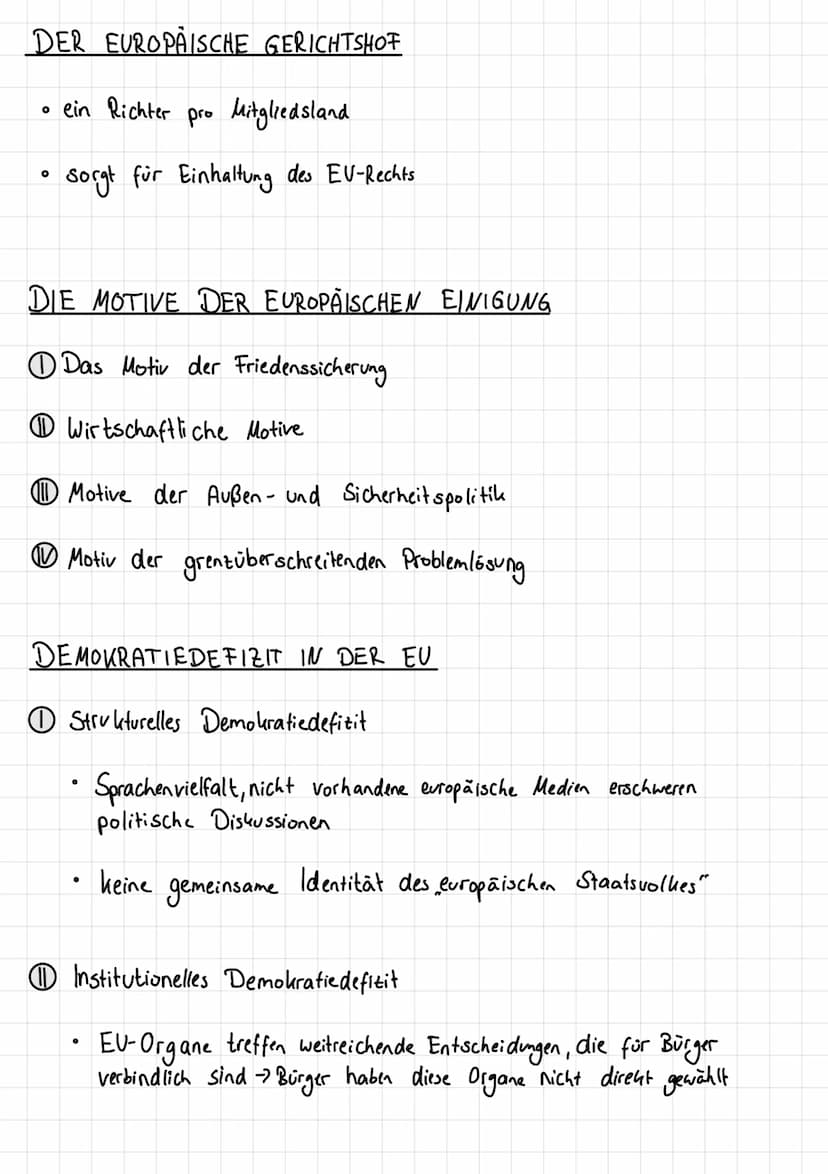 DER EUROPÄISCHE GERICHTSHOF
• ein Richter pro Mitgliedsland
• sorgt für Einhaltung des EU-Rechts
DIE MOTIVE DER EUROPÄISCHEN EINIGUNG
I Das Motiv der Friedenssicherung
II Wirtschaftliche Motive
III Motive der Außen- und Sicherheitspolitik
IV Motiv der grenzüberschreitenden Problemlösung
DEMOKRATIEDEFIZIT IN DER EU
I Strukturelles Demokratiedefizit
• Sprachenvielfalt, nicht vorhandene europäische Medien erschweren
politische Diskussionen
• keine gemeinsame Identität des „europäischen Staatsvolkes"
II Institutionelles Demokratiedefizit
• EU-Organe treffen weitreichende Entscheidungen, die für Bürger
verbindlich sind → Bürger haben diese Organe nicht direkt gewählt